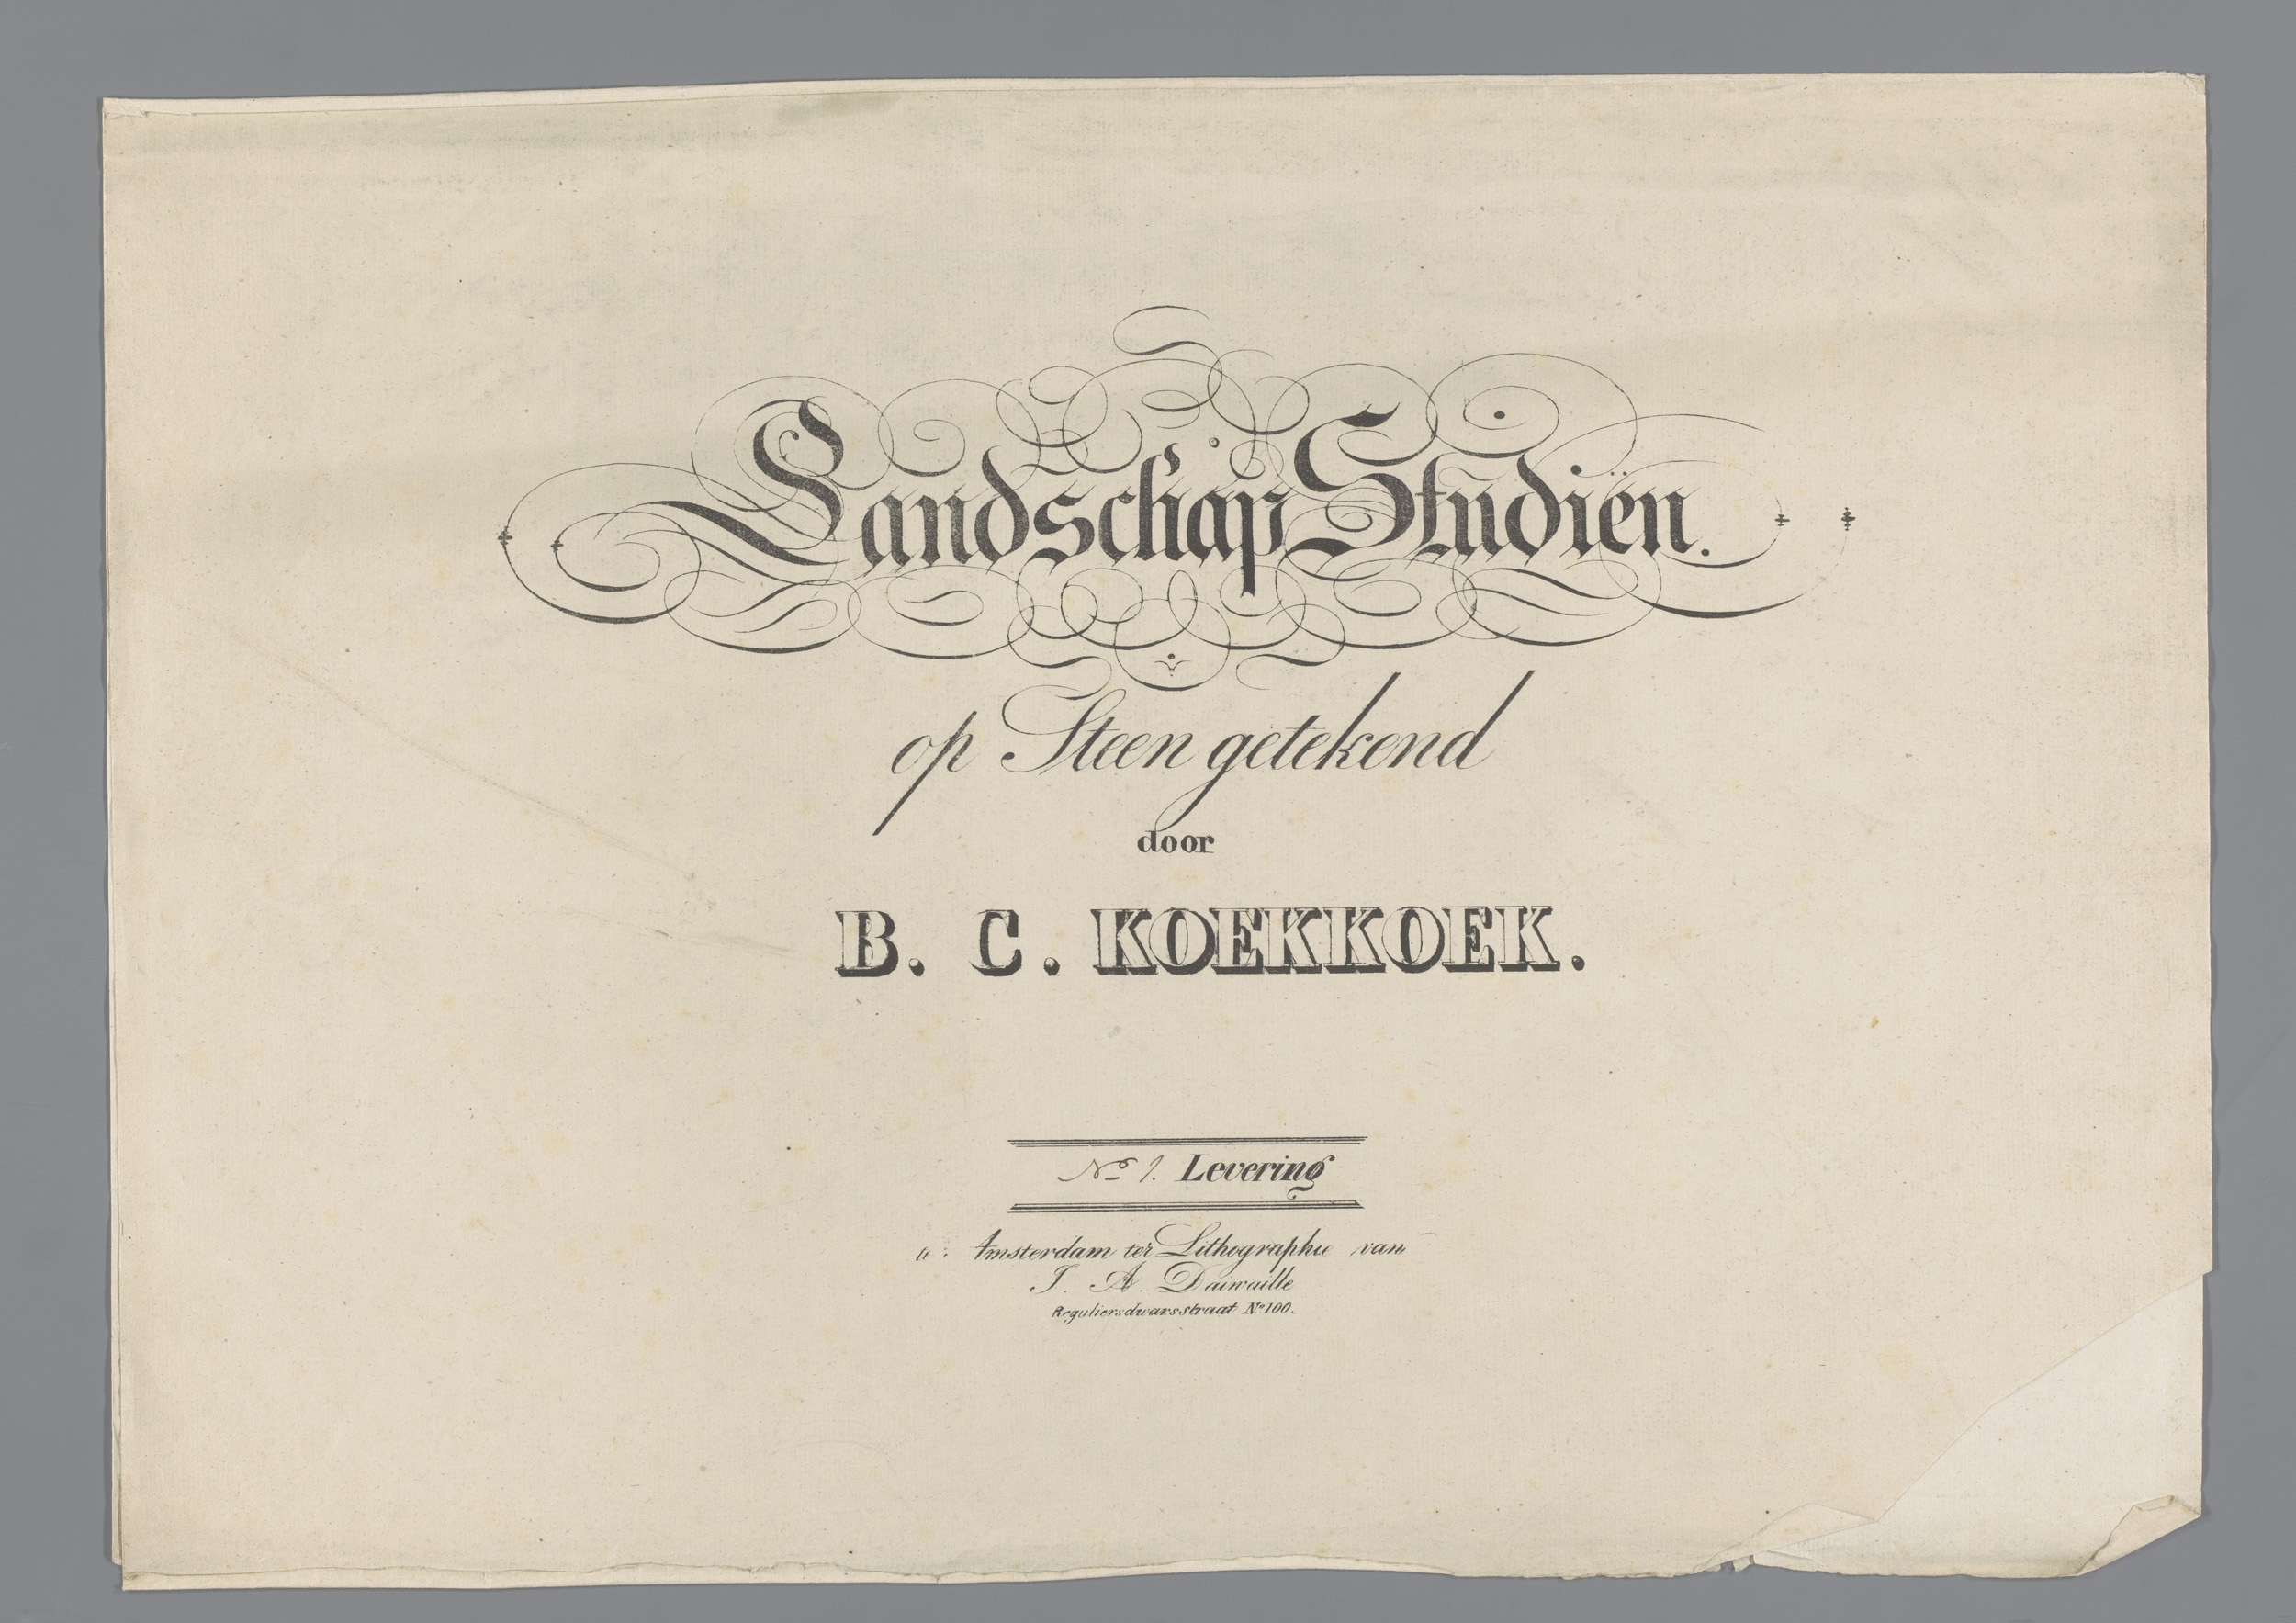 Landschap Studiën.
op Steen getekend
door
B. C. KOEKKOEK.
No 1. Levering
te Amsterdam ter Lithographie van
J. A. Daiwaille
Reguliersdwarsstraat No. 100.